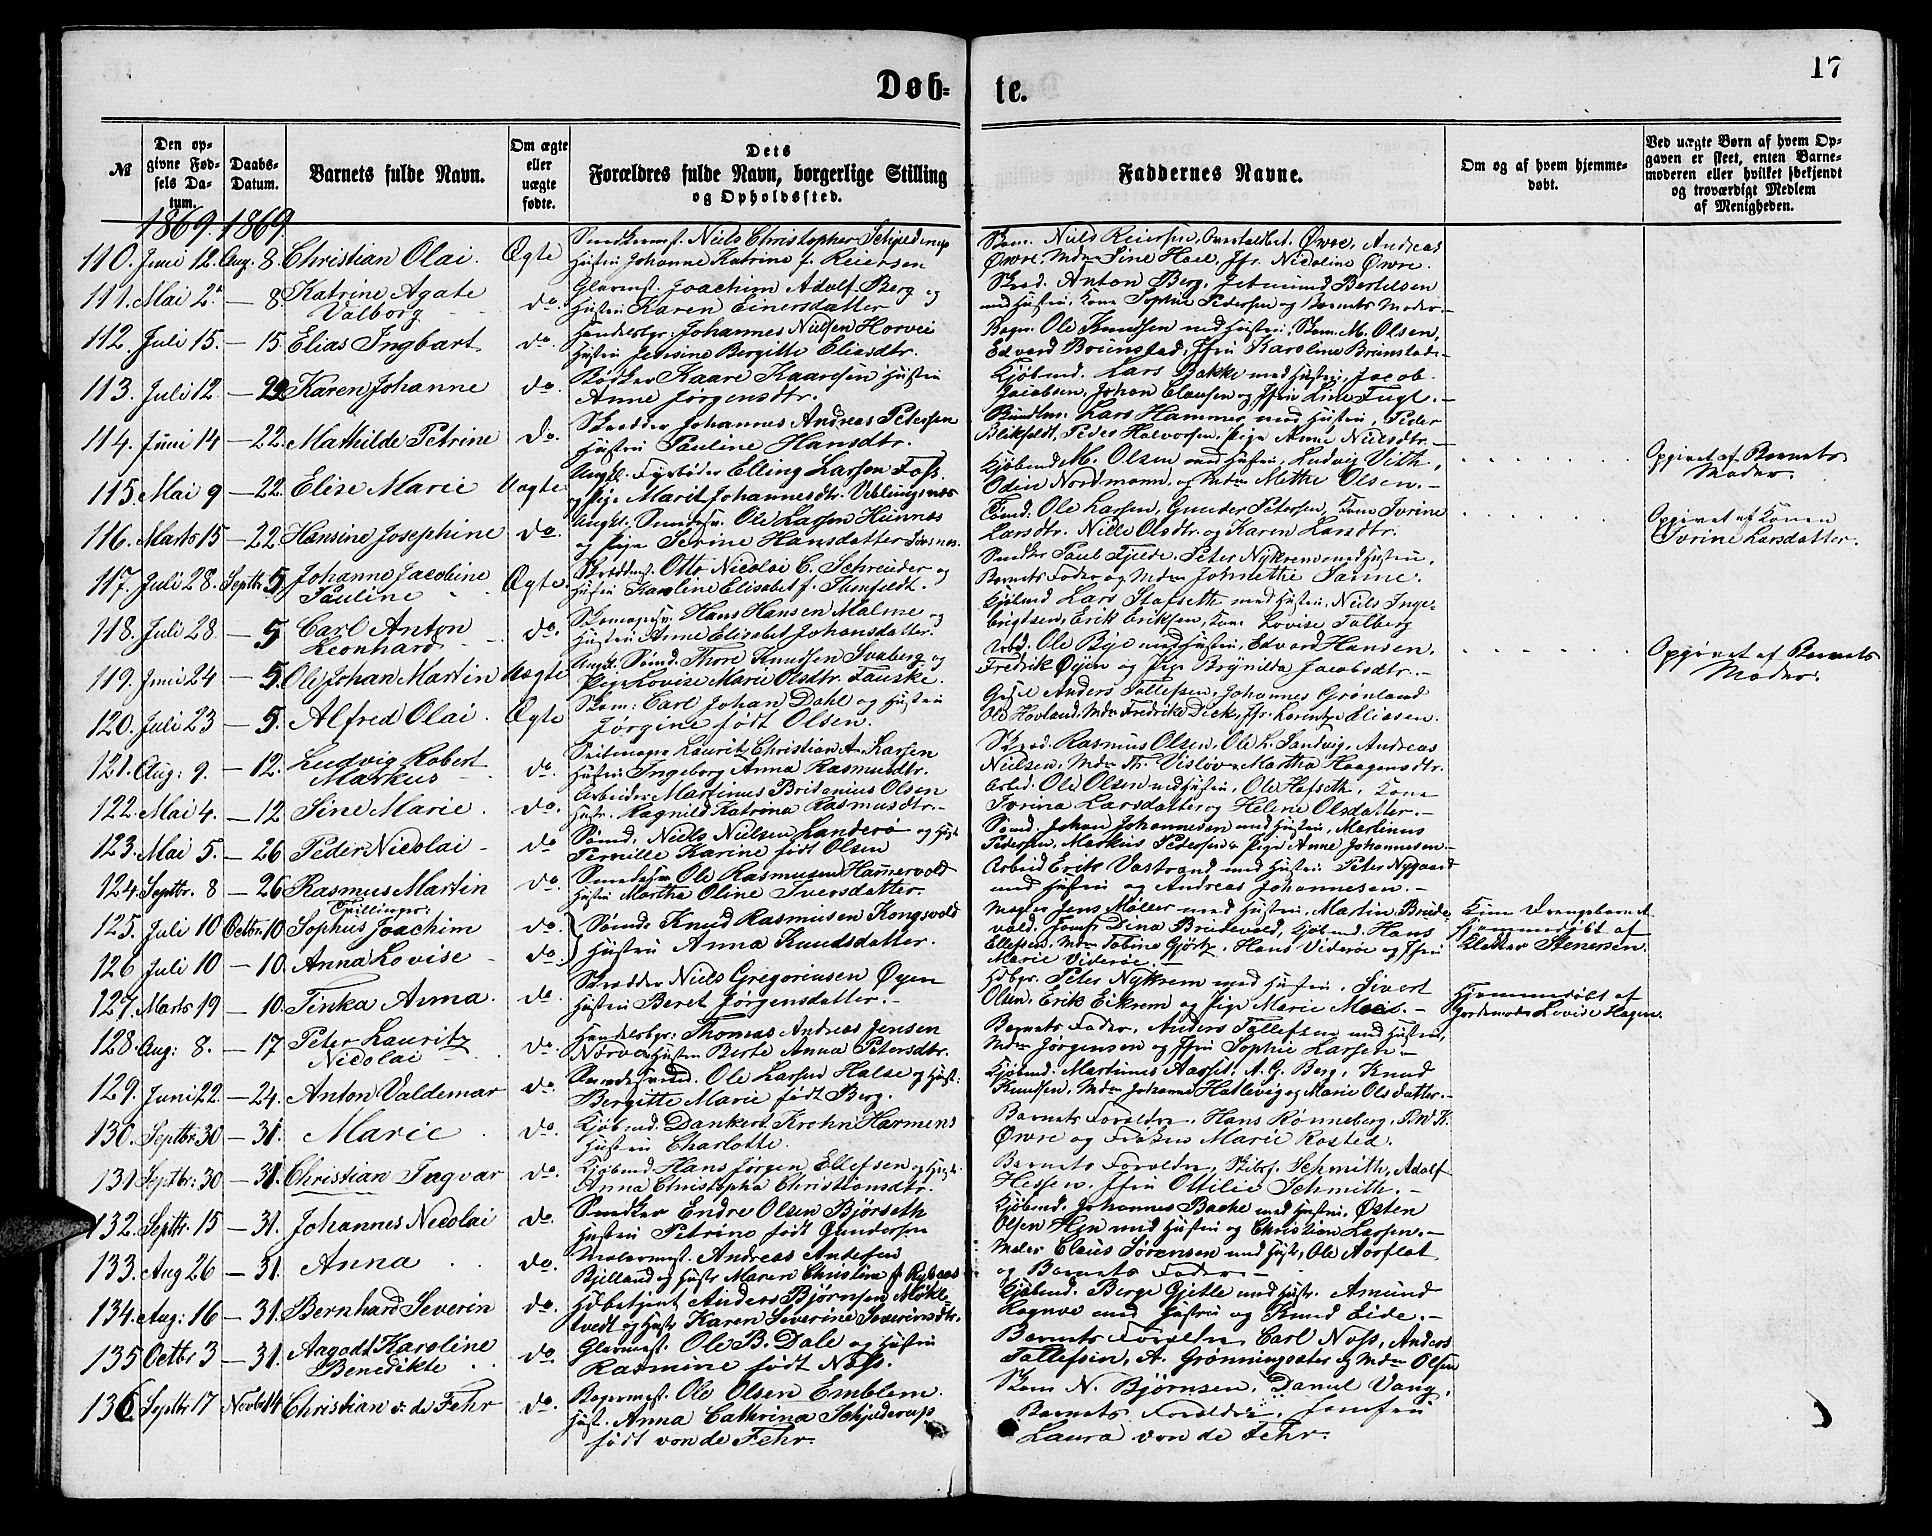 17
Døb-
te.
№
Den opgivne Fødsels Datum.
Daabs-Datum.
Barnets fulde Navn.
Om ægte eller uægte fødte.
Dets Forældres fulde Navn, borgerlige Stilling og Opholdssted.
Faddernes Navne.
Om og af hvem hjemmedøbt.
Ved uægte Børn af hvem Opgaven er skeet, enten Barnemoderen eller hvilket bekjendt og troværdigt Medlem af Menigheden.
1869. 1869.
110. Juni 12. Aug. 8. Christian Olai. Ægte
Niels Christopher Schjelderup
Hustru Johanne Katrine f. Reiersen
Niels Reiersen, Øwre, Andreas
Øwre. Mdm Sine Hoel, Jfr. Nicoline Øwre.
111. Mai 2. — 8. Katrine Agate
Valborg do.
Glarmest. Joachim Adolf Berg og
Hustru Karen Einersdatter
Anton Berg, Bertelsen
med Hustru, Kone Sophie Pedersen og Barnets Moder
112. Juli 15. — 15. Elias Ingbart do.
Handelsbgr. Johannes Nielsen Horvei
Hustru Bergitte Eliasdtr.
Ole Knudsen med Hustru, M. Olsen,
Edvard Brunstad, Jfru Karoline Brunstad
113. Juli 12 — 22 Karen Johanne do.
Bødker Kaare Kaaresen Hustru
Anne Jørgensdtr.
Kjøbmd. Lars Bakke med Hustru, Jacob
Jacobsen, Johan Clausen og Jfru Line Fugl.
114. Juni 14 — 22. Mathilde Petrine do.
Skrædder Johannes Andreas Pedersen
Hustru Pauline Hansdtr.
Lars Hammer med Hustru, Peder
Blikfeldt, Peder Halvorsen, Pige Anne Nielsdtr.
115. Mai 9 — 22. Elise Marie Uægte
Fyrbøder Elling Larsen Foss
og Pige Marit Johannesdtr. Veblungsnæs
Kjøbmd. M. Olsen med Hustru, Ludvig Vith,
Odin Nordmann, og Mdm Methe Olsen.
Opgivet af Barnets
Moder.
116. Marts 15 — 22. Hansine Josephine do.
Ole Larsen
og Pige Serine Hansdatter
Sømd. Ole Larsen, Gunder Petersen, Kone Ivrine
Larsdtr. Nille Olsdtr. og Karen Larsdtr.
Opgivet af Konen
Ivrine Larsdatter.
117. Juli 28. Septbr. 5. Johanne Jacobine
Pauline Ægte
Otto Nicolai C. Schreuder og
Hustru Karoline Elisabet f.
Snedker Paul Fjelde, Peter Nykrem med Hustru,
Barnets Fader og Mdm Johnethe Sanne.
118. Juli 28 — 5 Carl Anton
Leonhard do.
Hans Hansen Malme og
Hustru Anne Elisabet Johansdatter.
Kjøbmd Lars Stafseth med Hustru, Niels Inge-
brigtsen, Erik Eriksen, Kone Lovise Talberg
119. Juni 24 — 5. Ole Johan Martin Uægte
Sømd. Thore Knudsen Svaberg og
Pige Lovise Marie Olsdtr. Fauske.
Ole Bye med Hustru, Edvard Hansen,
Fredrik Øyen og Pige Brynilda Jacobsdtr.
Opgivet af Barnets
Moder.
120. Juli 23 — 5. Alfred Olai. Ægte
Carl Johan Dahl og Hustru
Jørgine født Olsen.
Anders Tollefsen, Johannes Grønland
Ole Hovland, Mdm Fredrike Dick, Jfr. Lorentze Eliasen.
121. Aug: 9. — 12. Ludvig Robert
Markus do.
Lauritz Christian A. Larsen
Hustru Ingeborg Anna Rasmusdtr.
Rasmus Olsen, Ole L. Sandvig, Andreas
Nielsen, Mdm Th. Visløv, Martha Haagensdtr.
122. Mai 4. — 12 Sine Marie do.
Arbeider Martinus Britanius Olsen
Hustr. Ragnild Katrina Rasmusdtr.
Arbed. Ole Olsen med Hustru, Ole Hafseth, Kone
Ivrina Larsdatter og Helene Olsdatter.
123. Mai 5. — 26 Peder Nicolai do
Sømd. Niels Nielsen Landerø og Hust.
Pernille Karine født Olsen
Sømd. Johan Johannesen med Hustru, Martinus
Pedersen, Markus Pedersen & Pige Anne Johannesen.
124. Septbr. 8 — 26 Rasmus Martin do.
Ole Rasmusen Hamervold
Hustru Martha Oline Iversdatter.
Arbeid Erik Vastrand med Hustru Peter Nygaard
med Hustru og Andreas Johannesen.
Tvillinger:
125. Juli 10 Octbr. 10. Sophus Joachim do
Sømd. Knud Rasmusen Kongsvold
Hustru Anna Knudsdatter.
Maler Jens Møller med Hustru, Martin Brude-
vold, Jomfr. Dina Brudevold, Kjøbmd. Hans
Kun Drengebarnet
hjemmedøbt af
Klokker Stenersen.
126 Juli 10 — 10. Anna Lovise do.
Ellefsen, Mdm Tobine Gjørtz, Hans Viderøe og Jfru
Marie Viderøe.
127. Marts 19 — 10. Tinka Anna. do.
Skrædder Niels Gregoriusen Øyen
Hustru Beret Jørgensdatter.
Hdbgr. Peter Nykrem med Hustru, Sivert
Olsen, Erik Eikrem og Pige Marie Moen.
Hjemmedøbt af
Jordemoder Lovise Hagen.
128. Aug: 8. — 17 Peter Lauritz
Nicolai do.
Handelsbgr. Thomas Andreas Jensen
Nørve Hustru Berte Anna Petersdtr.
Barnets Fader, Anders Tollefsen med Hustru,
Mdm Jørgensen og Jfru Sophie Larsen.
129. Juni 22. — 24. Anton Valdemar do
Ole Larsen Halse og Hust:
Bergitte Marie født Berg.
Kjøbmd. Martinus Aarset, A. G. Berg, Knud
Knudsen, Mdm Johanne Hatlevig og Marie Olsdatter.
130. Septbr. 30 — 31. Marie do.
Kjøbmd. Dankert Krohn Harmens
Hustru Charlotte.
Barnets Forældre, Hans Rønneberg,
Øwre og Frøken Marie Rosted.
131 Septbr: 30 — 31. Christian Ingvar do.
Kjøbmd. Hans Jørgen Ellefsen og Hust.
Anna Christopha Christiansdtr.
Barnets Forældre, Skibsf. Schmith, Adolf
Hessen, Jfru Ottilie Schmith.
132. Septbr. 15 — 31. Johannes Nicolai do
Snedker Endre Olsen Bjørseth
Hustru Petrine født Gundersen
Kjøbmd. Johannes Bache med Hustru, Østen
Olsen Hjn med Hustru og Christian Larsen.
133. Aug 26 — 31. Anna do.
Malermest. Andreas Andersen
Bjelland og Hustr Maren Christine f.
Maler Claus Sørensen med Hustr, Ole Aarflot
og Barnets Fader
134. Aug: 16 — 31. Bernhard Severin do.
Hdbetjent Anders Bjørnsen Møkle-
tvedt og Hustr Karen Severine Severinsdtr.
Kjøbmd. Berge Gjetle med Hustr. Amund
Hagnæ med Hustru og Knud Eide.
135 Octbr 3 — 31. Aagodt Karoline
Benedikte do
Glarmest. Ole B. Dale og Hustru
Rasmine født Noss.
Barnets Forældre, Carl Noss, Anders
Tollefsen, A. Grønningsæter og Mdm Olsen
136 Septbr 17 Novbr 14 Christian v. de Fehr do.
Bagermest. Ole Olsen Emblem.
Hust. Anna Cathrina Schjelderup
født von de Fehr.
N. Bjørnsen, Daniel Vang,
Barnets Forældre, Jomfru
Laura von de Fehr.